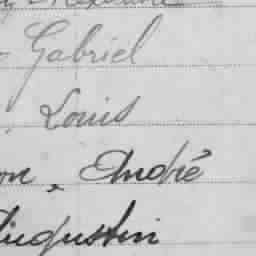 Gabriel
Louis
on, André
Augustin